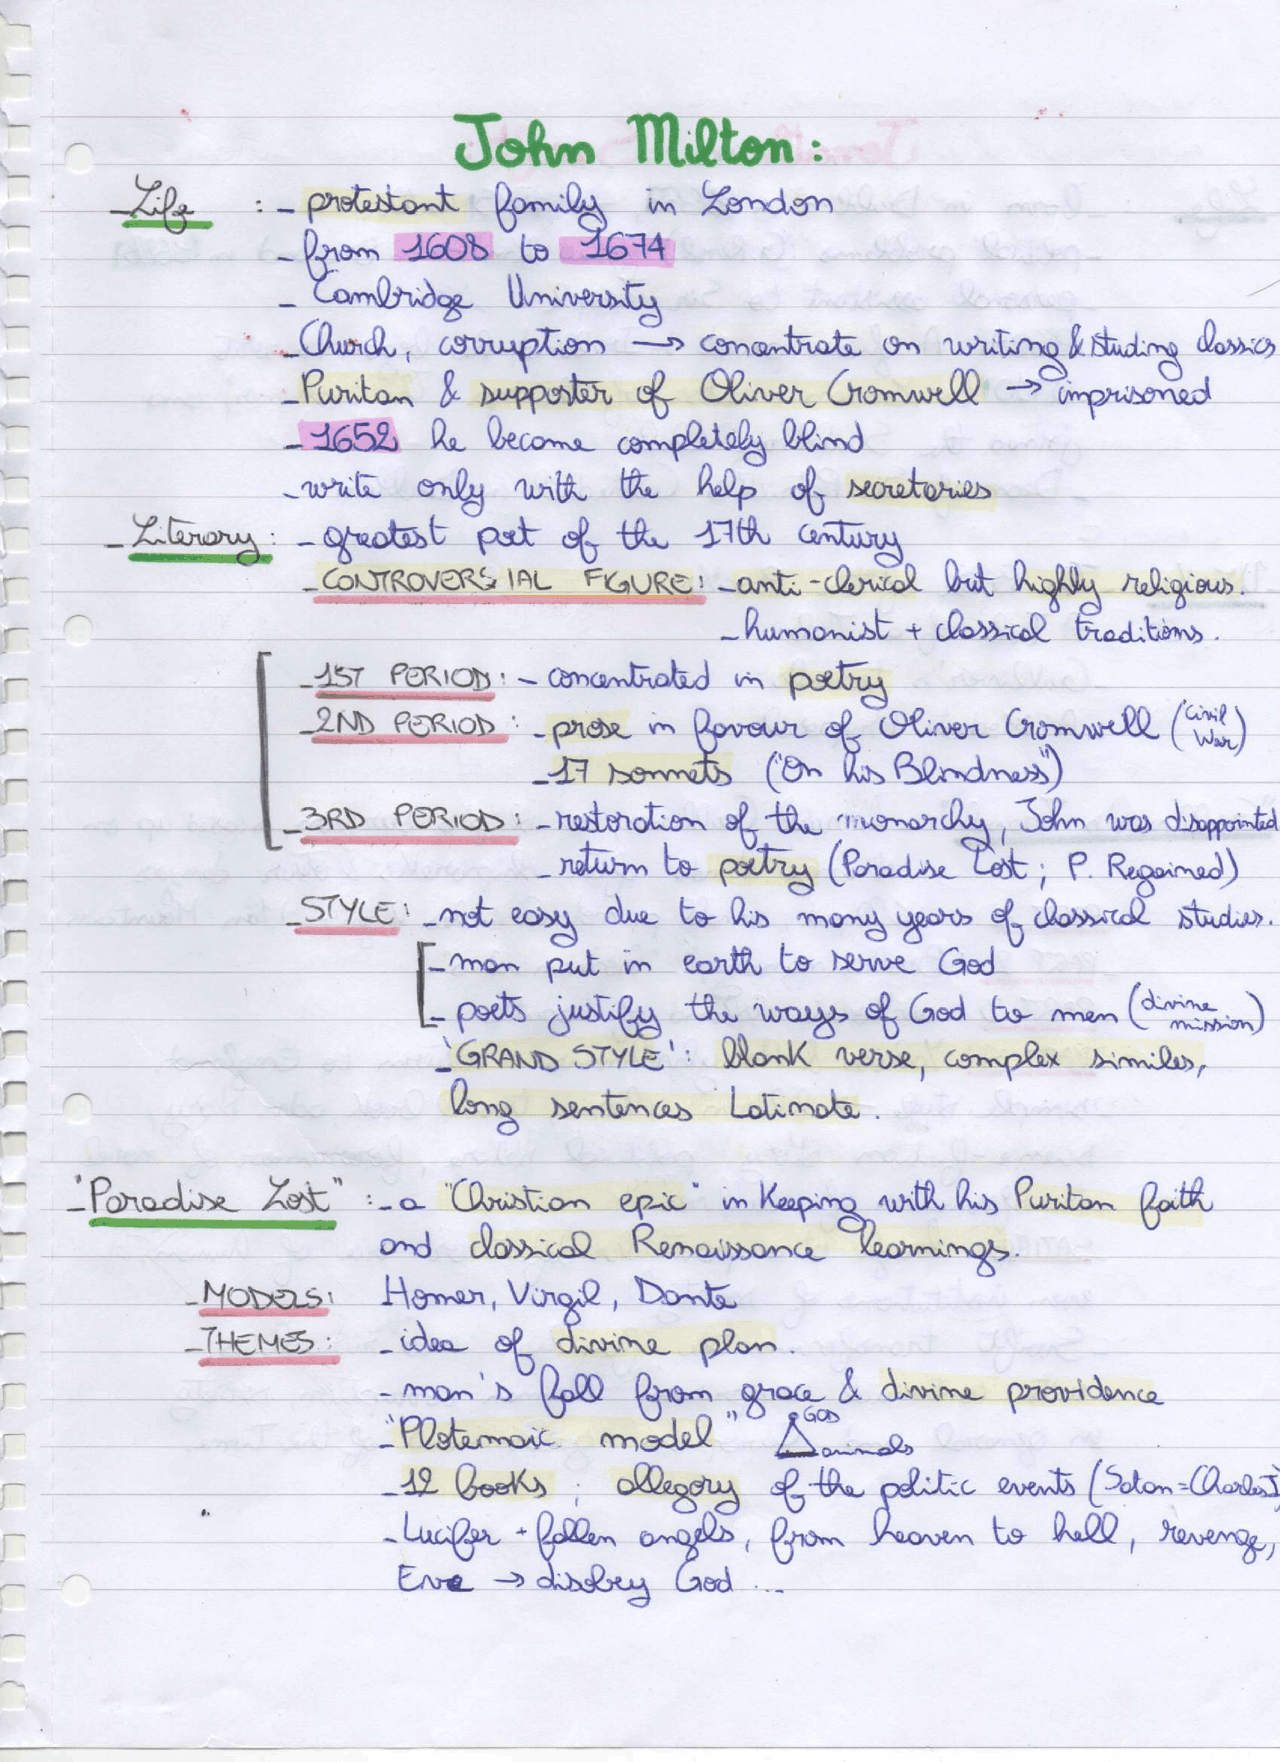 John Milton:
- Life : - protestant family in London
- from 1608 to 1674
- Cambridge University
- Church, corruption → concentrate on writing & studing classics
- Puritan & supporter of Oliver Cromwell → imprisoned
- 1652 he become completely blind
- write only with the help of secretaries
- Literary: - greatest poet of the 17th century
- CONTROVERSIAL FIGURE: - anti-clerical but highly religious.
- humanist + classical traditions.
- 1ST PERIOD: - concentrated in poetry
- 2ND PERIOD: - prose in favour of Oliver Cromwell (Civil War)
- 17 sonnets ("On his Blindness")
- 3RD PERIOD: - restoration of the monarchy, John was disappointed
- return to poetry (Paradise Lost; P. Regained)
- STYLE: - not easy due to his many years of classical studies.
- man put in earth to serve God
- poets justify the ways of God to men (divine mission)
- 'GRAND STYLE': blank verse, complex similes,
long sentences Latinate.
- "Paradise Lost" : - a "Christian epic" in keeping with his Puritan faith
and classical Renaissance learnings.
- MODELS: Homer, Virgil, Dante
- THEMES: - idea of divine plan.
- man's fall from grace & divine providence
- "Plotemaic model" GOD
animals
- 12 books; allegory of the politic events (Satan=Charles I)
- Lucifer + fallen angels, from heaven to hell, revenge,
Eve → disobey God ...